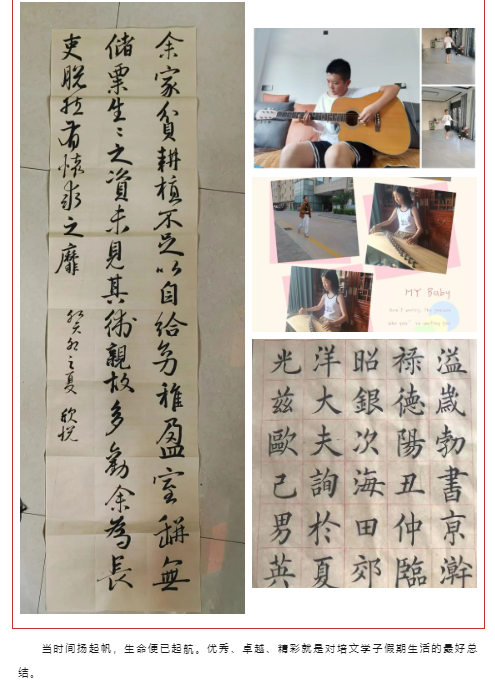 余家貧耕植不足以自給幼稚盈室缾無
儲粟生〻之資未見其術親故多勸余為長
吏脫然有懷求之靡
癸卯之夏 欣悅
MY Baby
Don't worry, the
溢歲勃書亰澣
祿德陽丑仲臨
昭銀次海田郊
洋大夫詢於夏
光茲歐己男英
当时间扬起帆，生命便已起航。优秀、卓越、精彩就是对培文学子假期生活的最好总
结。